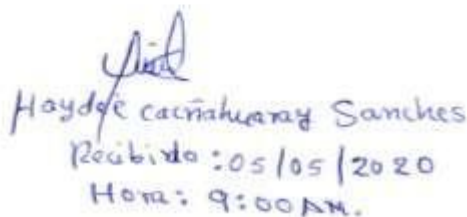 Haydeé Cacñahuaray Sanches
Recibido : 05/05/2020
Hora: 9:00 AM.